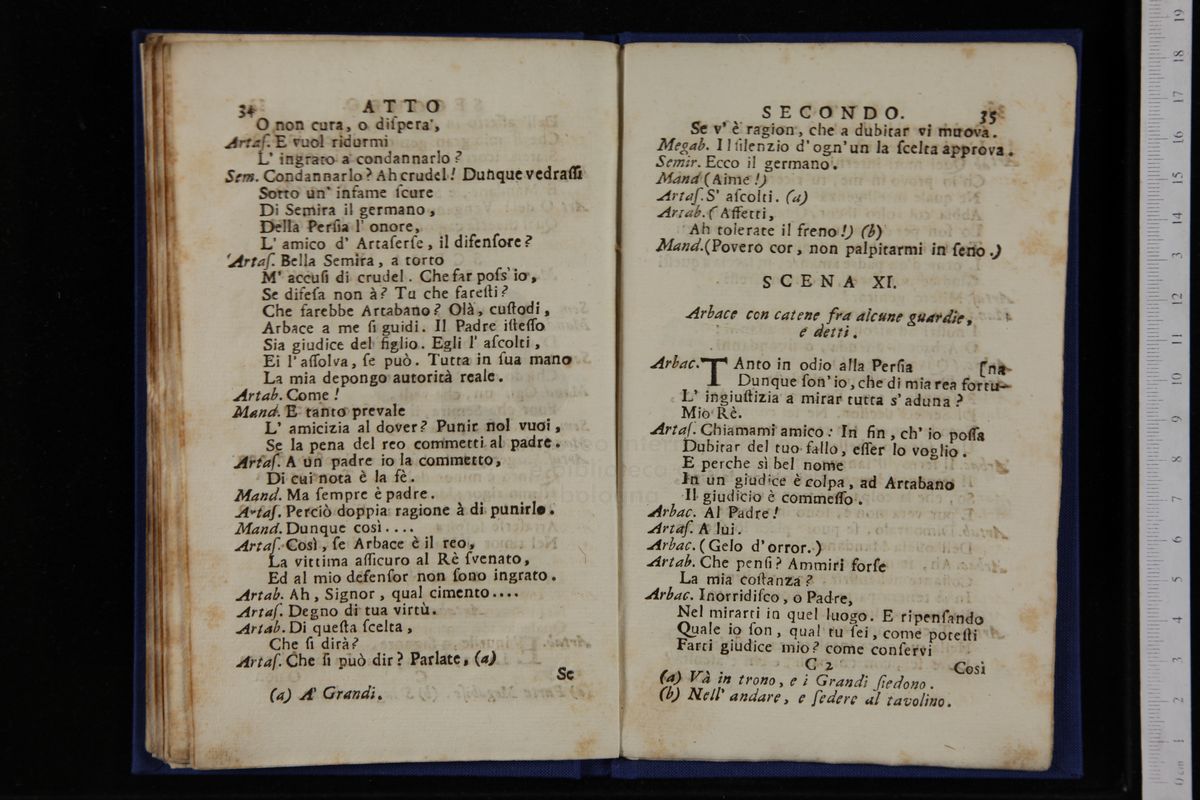 34 ATTO
O non cura, o diſpera',
Artaſ. E vuol ridurmi
L' ingrato a condannarlo?
Sem. Condannarlo? Ah crudel! Dunque vedraſſi
Sotto un' infame ſcure
Di Semira il germano,
Della Perſia l' onore,
L' amico d' Artaſerſe, il difenſore?
Artaſ. Bella Semira, a torto
M' accuſi di crudel. Che far poſs' io,
Se difeſa non à? Tu che fareſti?
Che farebbe Artabano? Olà, cuſtodi,
Arbace a me ſi guidi. Il Padre iſteſſo
Sia giudice del figlio. Egli l' aſcolti,
Ei l' aſſolva, ſe può. Tutta in ſua mano
La mia depongo autorità reale.
Artab. Come!
Mand. E tanto prevale
L' amicizia al dover? Punir nol vuoi,
Se la pena del reo commetti al padre.
Artaſ. A un padre io la commetto,
Di cui nota è la fè.
Mand. Ma ſempre è padre.
Artaſ. Perciò doppia ragione à di punirlo.
Mand. Dunque così....
Artaſ. Così, ſe Arbace è il reo,
La vittima aſſicuro al Rè ſvenato,
Ed al mio defenſor non ſono ingrato.
Artab. Ah, Signor, qual cimento....
Artaſ. Degno di tua virtù.
Artab. Di queſta ſcelta,
Che ſi dirà?
Artaſ. Che ſi può dir? Parlate, (a)
Se
(a) A' Grandi.
SECONDO. 35
Se v' è ragion, che a dubitar vi muova.
Megab. Il ſilenzio d' ogn' un la ſcelta approva.
Semir. Ecco il germano.
Mand (Aime!)
Artaſ. S' aſcolti. (a)
Artab. (Affetti,
Ah tolerate il freno!) (b)
Mand. (Povero cor, non palpitarmi in ſeno.)
SCENA XI.
Arbace con catene fra alcune guardie,
e detti.
Arbac. TAnto in odio alla Perſia [na
Dunque ſon' io, che di mia rea fortu-
L' ingiuſtizia a mirar tutta s' aduna?
Mio Rè.
Artaſ. Chiamami amico: In fin, ch' io poſſa
Dubitar del tuo fallo, eſſer lo voglio.
E perche sì bel nome
In un giudice è colpa, ad Artabano
Il giudicio è commeſſo.
Arbac. Al Padre!
Artaſ. A lui.
Arbac. (Gelo d' orror.)
Artab. Che penſi? Ammiri forſe
La mia coſtanza?
Arbac. Inorridiſco, o Padre,
Nel mirarti in quel luogo. E ripenſando
Quale io ſon, qual tu ſei, come poteſti
Farti giudice mio? come conſervi
C 2 Così
(a) Và in trono, e i Grandi ſiedono.
(b) Nell' andare, e ſedere al tavolino.